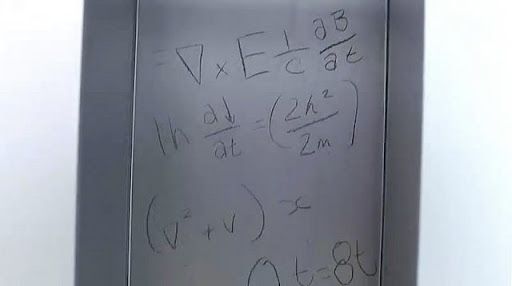 = ∇ × E 1/c ∂B/∂t
1h ∂↓/∂t = (2h²/2m)
(v² + v) x
t = 8t